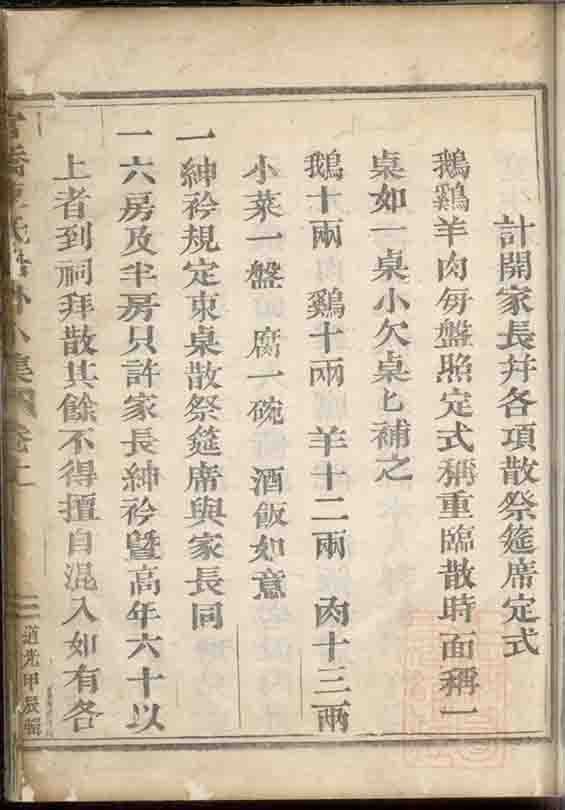 計開家長并各項散祭筵席定式
鵝鷄羊肉每盤照定式稱重臨散時面稱一
桌如一桌小欠桌匕補之
鵝十兩 鷄十兩 羊十二兩 肉十三兩
小菜一盤 腐一碗 酒飯如意
一紳衿規定東桌散祭筵席與家長同
一六房及半房只許家長紳衿曁高年六十以
上者到祠拜散其餘不得擅自混入如有各
道光甲辰輯